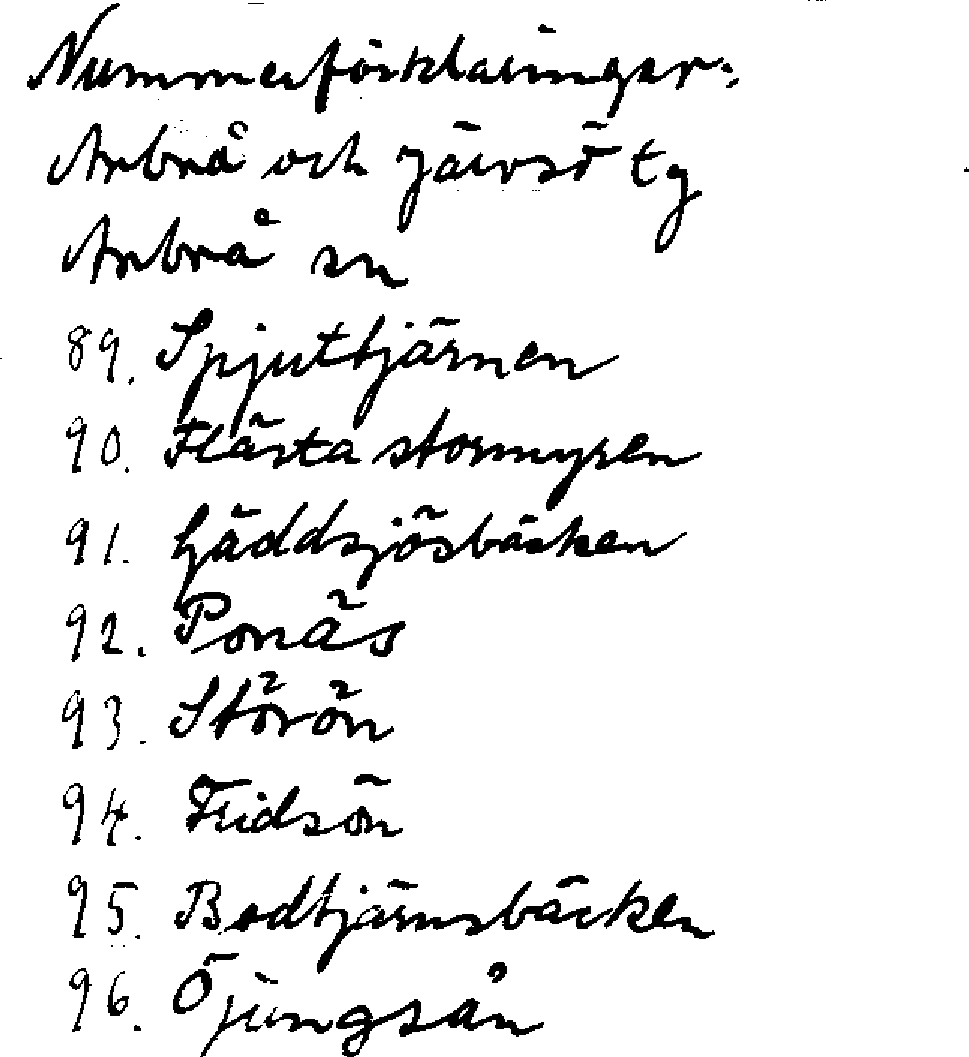 Nummerförklaringar:
Arbrå och Järvsö tg
Arbrå sn
89. Spjuttjärnen
90. Flästa stormyren
91. Gäddsjösbäcken
92. Ponäs
93. Störön
94. Flidsön
95. Bodtjärnsbäcken
96. Öjungsån